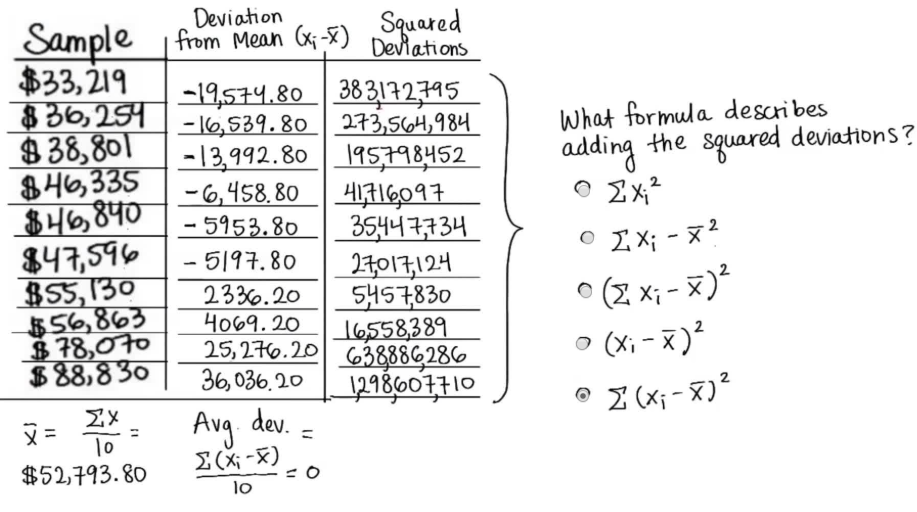 Sample Deviation from Mean (xᵢ-x̄) Squared Deviations
$33,219 -19,574.80 383,172,795
$36,254 -16,539.80 273,564,984
$38,801 -13,992.80 195,798,452
$46,335 -6,458.80 41,716,097
$46,840 -5953.80 35,447,734
$47,596 -5197.80 27,017,124
$55,130 2336.20 5,457,830
$56,863 4069.20 16,558,389
$78,070 25,276.20 638,886,286
$88,830 36,036.20 1,298,607,710
x̄ = Σx / 10 =
$52,793.80
Avg. dev. =
Σ(xᵢ-x̄) / 10 = 0
What formula describes
adding the squared deviations?
Σxᵢ²
Σxᵢ - x̄²
(Σxᵢ - x̄)²
(xᵢ - x̄)²
Σ(xᵢ - x̄)²